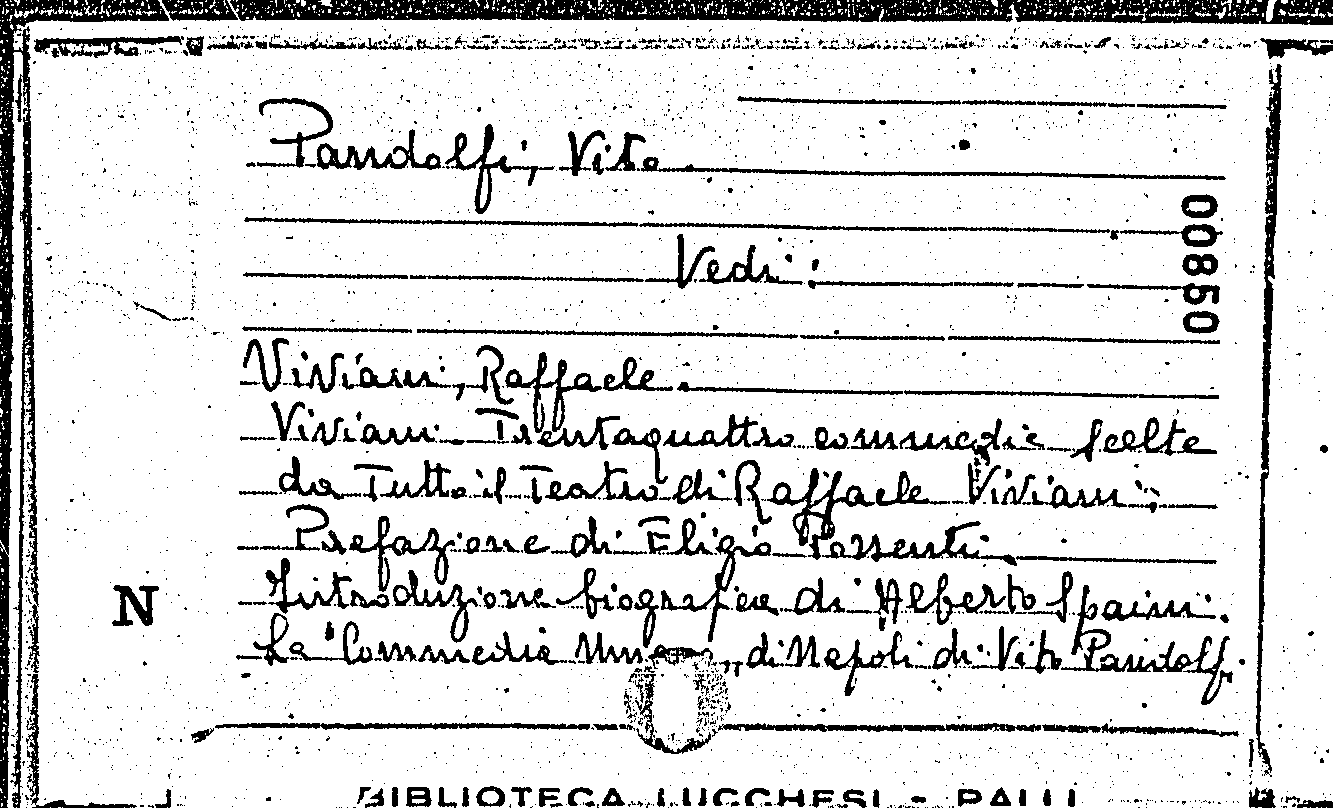 Pandolfi, Vito.
Vedi:
00850
Viviani, Raffaele.
Viviani. Trentaquattro commedie scelte
da Tutto il Teatro di Raffaele Viviani.
Prefazione di Eligio Possenti.
Introduzione biografica di Alberto Spaini.
N
La "Commedia Umana" di Napoli di Vito Pandolfi.
BIBLIOTECA LUCCHESI - PALLI